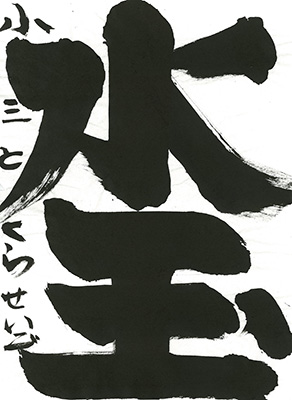 水玉
小三とくらせいご